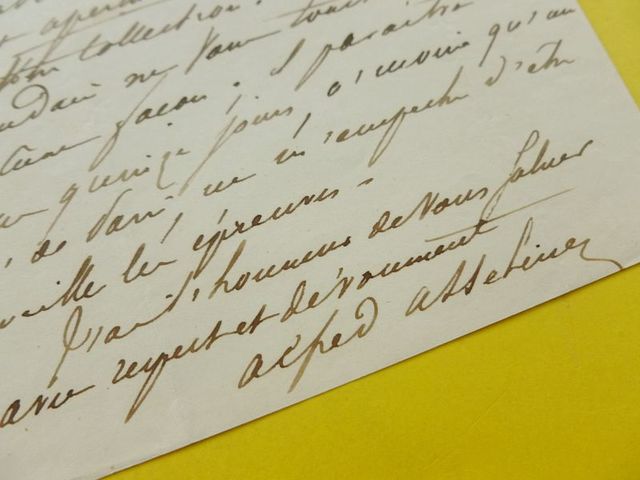 collection.
ne vous
façon. il paraîtra
quinze jours, à moins qu'au
de Paris ne m'empêche d'être
les épreuves.
J'ai l'honneur de vous saluer
avec respect et dévouement
Alfred Asseline